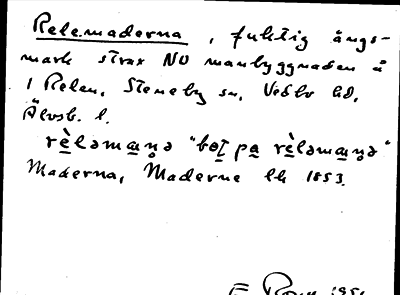 Relemaderna, fuktig ängs-
mark strax NO manbyggnaden å
1 Relen, Steneby sn, Vedbo hd,
Älvsb. l.
rè̱ləma̱ṉə "bo̱ṯ pa̱ rè̱ləma̱ṉə"
Maderna, Maderne lk 1853.
E 195